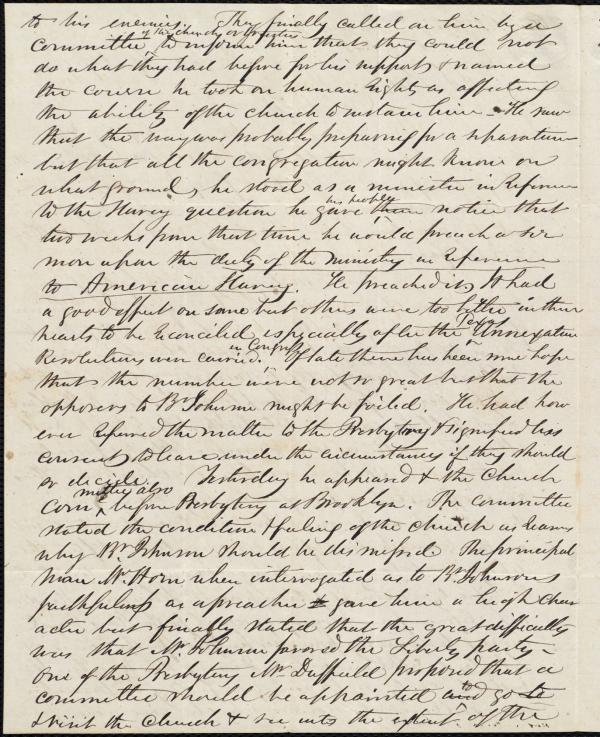 to his enemies. They finally called on him by a
committee of the church or trustees to inform him that they could not
do what they had before for his support & named
the course he took on human rights as affecting
the ability of the church to sustain him - He saw
that the way was probably preparing for a separation
but that all the congregation might know on
what ground he stood as a minister in reference
to the slavery question he gave them his people notice that
two weeks from that time he would preach a ser
mon upon the duty of the ministry in reference
to American Slavery. He preached it, it had
a good effect on some but others were too bitter in their
hearts to be reconciled especially after the Texas
Resolutions were carried in Congress. Of late there has been some hope
that the number were not so great but that the
opposers to Br Johnson might be foiled. He had how
ever referred the matter to the Presbytery & signified his
consent to leave under the circumstances if they should
so decide. Yesterday he appeared & the church
committee also before Presbytery at Brooklyn. The committee
stated the condition & feeling of the church as reasons
why Br Johnson should be dismissed. The principal
man Mr Horn when interrogated as to Br Johnsons
faithfulness as a preacher gave him a high char
acter but finally stated that the great difficulty
was that Mr. Johnson favored the Liberty party -
One of the Presbytery Mr Duffield proposed that a
committee should be appointed and to go to
& visit the church & see into the extent of the